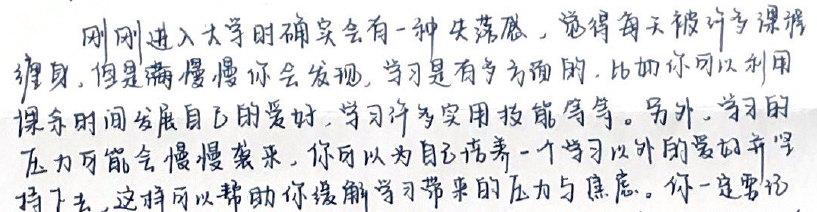 刚刚进入大学时确实会有一种失落感，觉得每天被许多课程
缠身，但是慢慢你会发现，学习是有多方面的，比如你可以利用
课余时间发展自己的爱好，学习许多实用技能等等。另外，学习的
压力可能会慢慢袭来，你可以为自己培养一个学习以外的爱好并坚
持下去，这将可以帮助你缓解学习带来的压力与焦虑。你一定要记